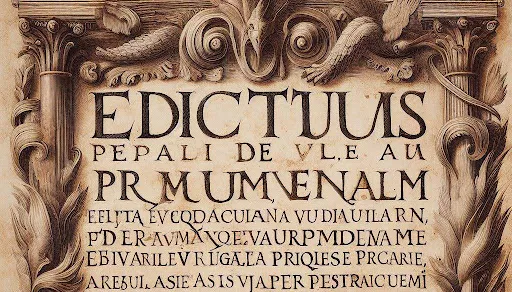 EDICTUUIS
PEPALI DE VL.E AU
PRMUMVENALM
EFLITA EVCQDACUIANA VUDIAUILARN,
PDERAVMAXQEVAURPMDENAME
EBIVARILEVRLIGALA PRIQLESE PRCARIE,
AREBUL ASIE AS IS VJAPER PESTRAICUEMI